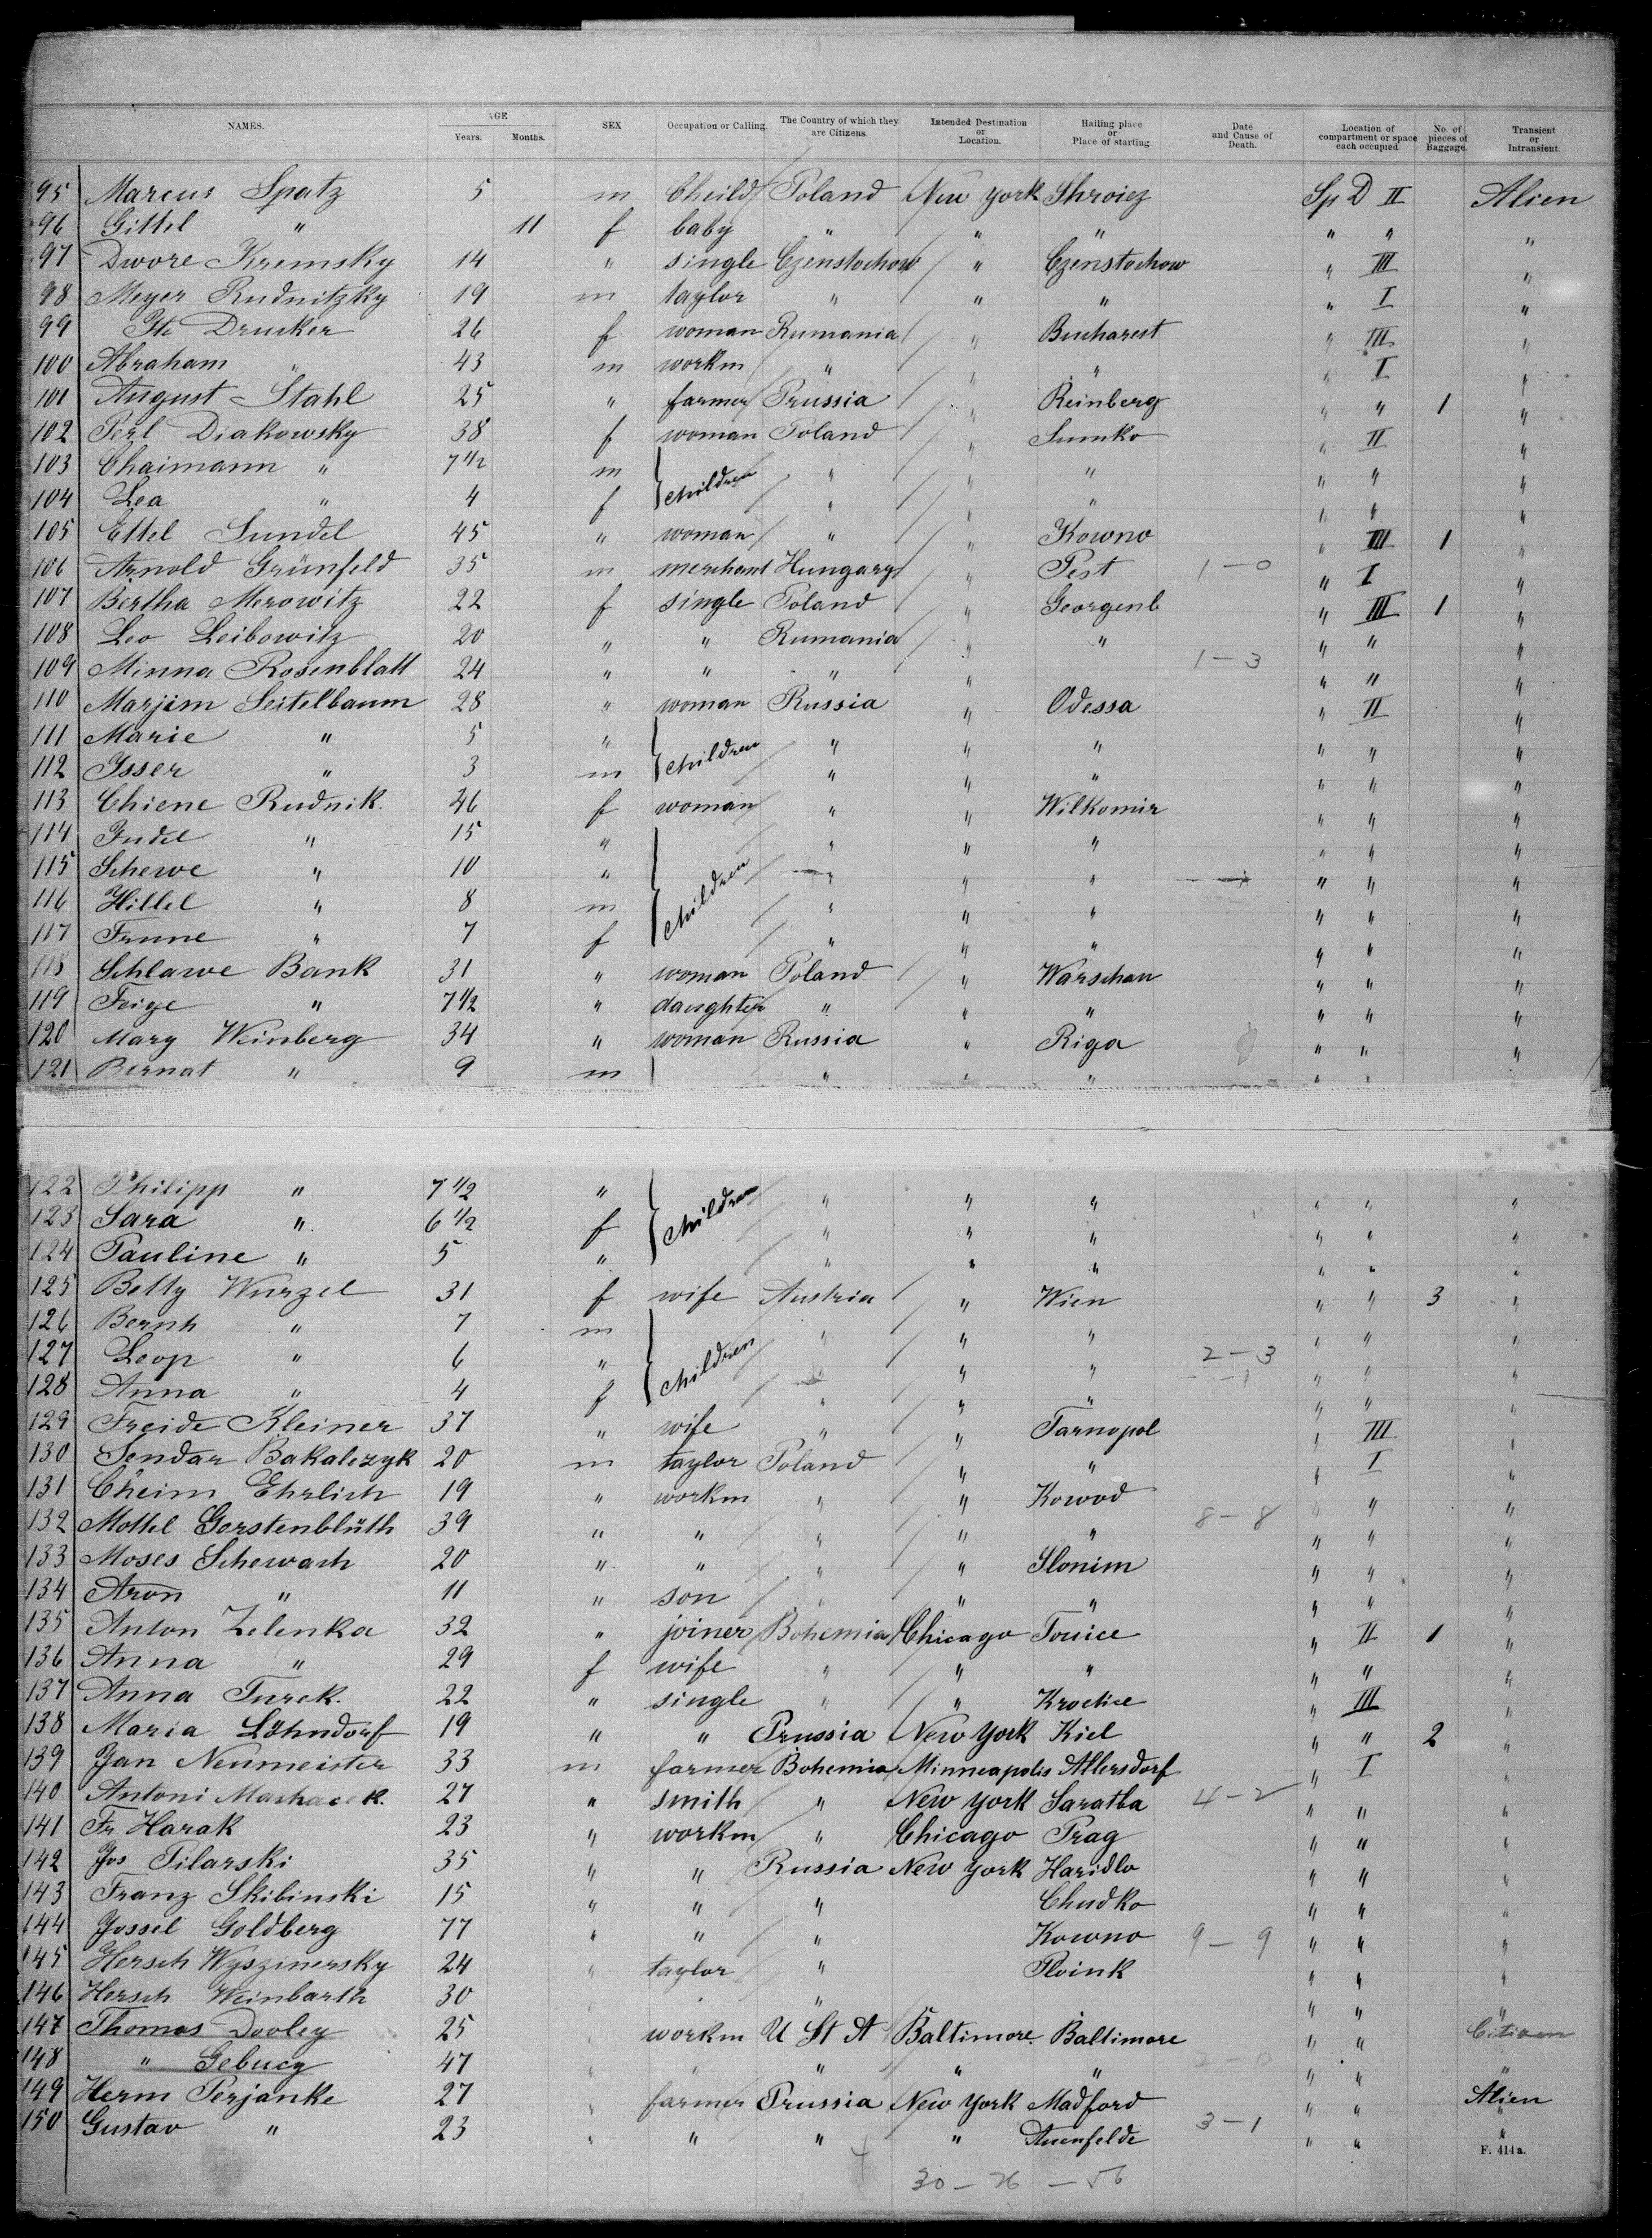 NAMES. AGE Years. Months. SEX Occupation or Calling. The Country of which they are Citizens. Intended Destination or Location. Hailing place or Place of starting Date and Cause of Death. Location of compartment or space each occupied No. of pieces of Baggage. Transient or Intransient.
95 Marcus Spatz 5 m Cheild Poland New York Sp D II Alien
96 Gittel " 11 f baby " " " " " "
97 Dwore Kremsky 14 " single Czenstochow " Czenstochow " III "
98 Meyer Rudnitzky 19 m taylor " " " " I "
99 Drucker 26 f woman Rumania " Bucharest " III "
100 Abraham " 43 m workm " " " " I "
101 August Stahl 25 " farmer Prussia " Reinberg " " 1 "
102 Perl Diakowsky 38 f woman Poland " Sumko " II "
103 Chaimann " 7 1/2 m children " " " " " "
104 Lea " 4 f " " " " " "
105 Ettel Sundel 45 " woman " " Kowno " III 1 "
106 Arnold Grünfeld 35 m merchant Hungary " Pest 1-0 " I "
107 Bertha Merowitz 22 f single Poland " Georgenb " III 1 "
108 Leo Leibowitz 20 " " Rumania " " " " "
109 Minna Rosenblatt 24 " " " " 1-3 " " "
110 Marjim Seitelbaum 28 " woman Russia " Odessa " II "
111 Marie " 5 " children " " " " " "
112 Isser " 3 m " " " " " "
113 Chiene Rudnik. 46 f woman " " Wilkomir " " "
114 Judel " 15 " " " " " " "
115 Schewe " 10 " children " " " " " "
116 Hillel " 8 m " " " " " "
117 Frune " 7 f " " " " " "
118 Schlawe Bank 31 " woman Poland " Warschau " " "
119 Feige " 7 1/2 " daughter " " " " " "
120 Mary Weinberg 34 " woman Russia " Riga " " "
121 Bernat " 9 m " " " " "
122 Philipp " 7 1/2 " children " " " " " "
123 Sara " 6 1/2 f " " " " " "
124 Pauline " 5 " " " " " " "
125 Betty Wurzel 31 f wife Austria " Wien " " 3 "
126 Bernh " 7 m " " " " " "
127 Leop " 6 " children " " " 2-3 " " "
128 Anna " 4 f " " " " " "
129 Freide Kleiner 37 " wife " " Tarnopol " III "
130 Sendar Bakalczyk 20 m taylor Poland " " " I "
131 Cheim Ehrlich 19 " workm " " Kowod " " "
132 Mottel Gerstenblüth 39 " " " " " 8-8 " " "
133 Moses Schewach 20 " " " " Slonim " " "
134 Aron " 11 " son " " " " " "
135 Anton Zelenka 32 " joiner Bohemia Chicago Tousice " II 1 "
136 Anna " 29 f wife " " " " " "
137 Anna Turek. 22 " single " " " III "
138 Maria Löhndorf 19 " " Prussia New York Kiel " " 2 "
139 Jan Neumeister 33 m farmer Bohemia Minneapolis Allersdorf " I "
140 Antoni Machacek. 27 " smith " New York Saratba 4-2 " " "
141 Fr Harak 23 " workm " Chicago Prag " " "
142 Jos Pilarski 35 " " Russia New York Haridlo " " "
143 Franz Skibinski 15 " " " Chudko " " "
144 Jossel Goldberg 77 " " " Kowno 9-9 " " "
145 Hersch Wyszinersky 24 " taylor " Ploink " " "
146 Hersch Weinbarth 30 " " " " "
147 Thomas Dooley 25 " workm U St A Baltimore Baltimore " " Citizen
148 " Gebucy 47 " " " " " 2-0 " " "
149 Herm Perjanke 27 " farmer Prussia New York Madford " " Alien
150 Gustav " 23 " " " " Auenfelde 3-1 " " "
F. 414 a.
30-26-56